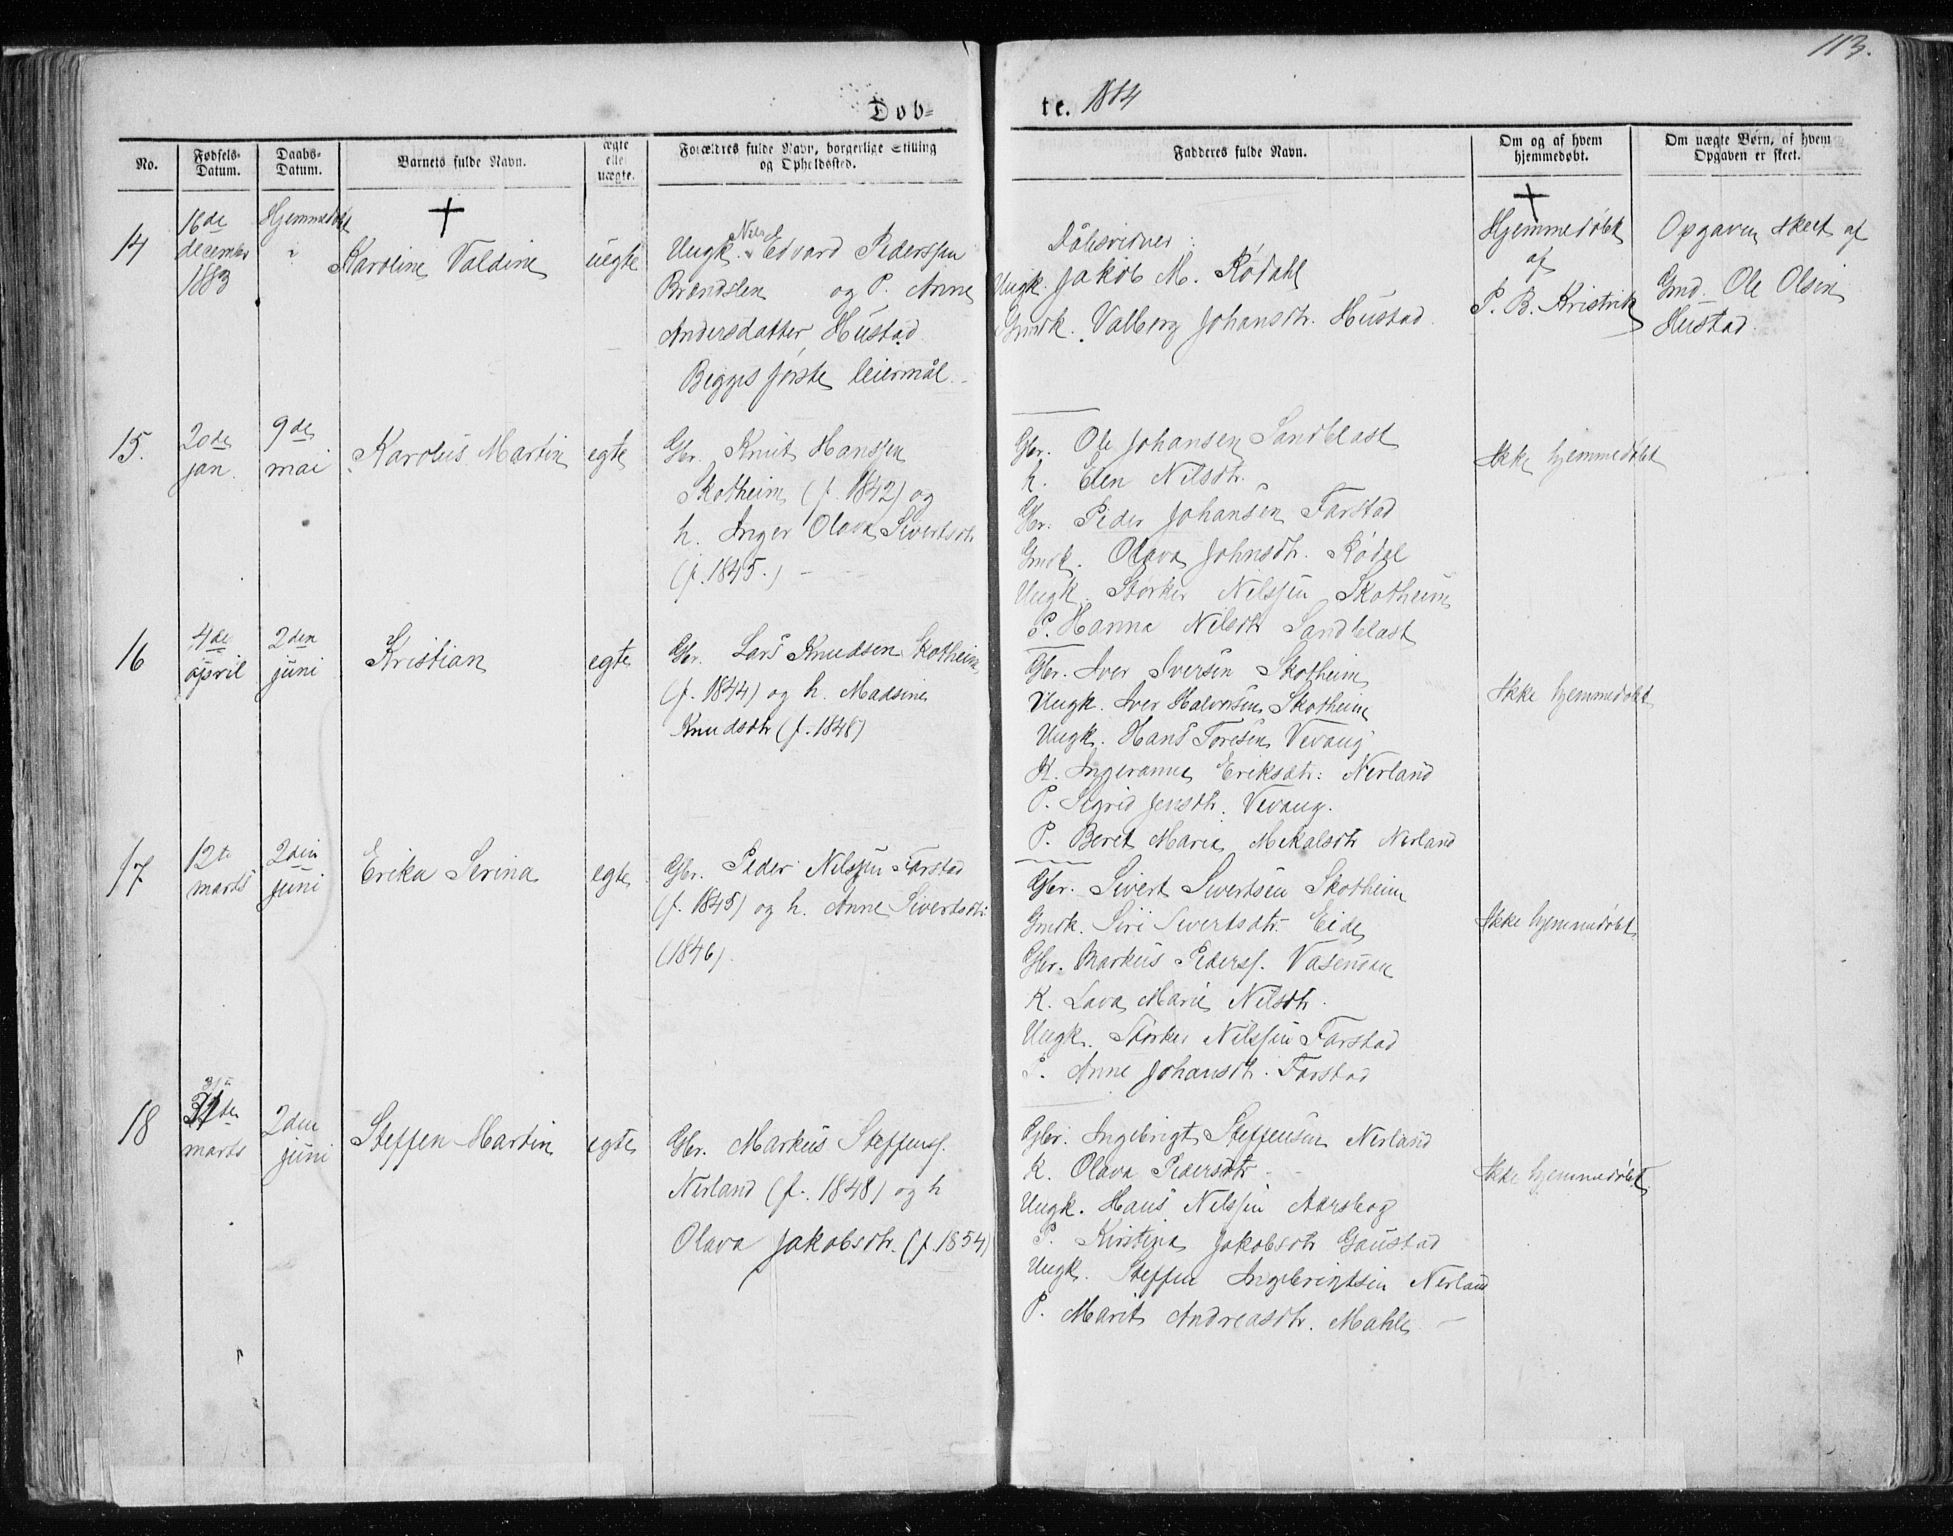 113.
Døb=
te. 1884
No.
Fødsels-
Datum.
Daabs-
Datum.
Barnets fulde Navn.
ægte
eller
uægte.
Forældres fulde Navn, borgerlige Stilling
og Opholdssted.
Fadderes fulde Navn.
Om og af hvem
hjemmedøbt.
Om uægte Børn, af hvem
Opgaven er skeet.
14
16de
december
1883
Hjemmedøbt
Karoline Valdine
uegte
Ungk. Nils Edvard Pederssen
Brandslen og P. Anne
Andersdatter Hustad
Begges første leiermål
Dåbsvidner:
Ungk. Jakob M. Rødahl
Gmdk. Valborg Johansdtr. Hustad
Hjemmedøbt
af
P. B. Kristvik
Opgaven skeet af
Gmd. Ole Olsen
Hustad
15.
20de
jan.
9de
mai
Karolus Martin
egte
Gbr. Knut Hanssen
Skotheim (f. 1842) og
h. Inger Olava Sivertsdtr
(f. 1845.)
Gbr. Ole Johansen Sandblast
k. Elen Nilsdtr.
Gbr. Peder Johansen Farstad
Gmdk. Olava Johnsdtr. Rødal
Ungk. Størker Nilssen Skotheim
P. Hanna Nilsdtr Sandblast
Ikke hjemmedøbt
16
4de
april
2den
juni
Kristian
egte
Gbr. Lars Knudsen Skotheim
(f. 1844) og h. Madsine
Knudsdtr (f. 1848)
Gbr. Iver Iversen Skotheim
Ungk. Iver Halvorsen Skotheim
Ungk. Hans Toresen Vevang
K. Ingeranna Eriksdtr: Nerland
P. Sigrid Jensdtr. Vevang.
P. Beret Marie Mekalsdtr Nerland
Ikke hjemmedøbt
17
12te
marts
2den
juni
Erika Serina
egte
Gbr. Peder Nilssen Farstad
(f. 1845) og h. Anne Sivertsdtr
(1846).
Gbr. Sivert Sivertsen Skotheim
Gmdk. Siri Sivertsdtr. Eide
Gbr. Markus Peders.
K. Lava Marie Nilsdtr.
Ungk. Størker Nilssen Farstad
P. Anne Johansdtr. Farstad
Ikke hjemmedøbt
18
31te
marts
2den
juni
Steffen Martin
egte
Gbr. Markus Steffens.
Nerland (f. 1848) og h
Olava Jakobsdtr. (f. 1854)
Gbr. Ingebrigt Steffensen Nerland
K. Olava Pedersdtr
Ungk. Hans Nilssen Aarsbog
P. Kirstina Jakobsdtr Gaustad
Ungk. Steffen Ingebrigtsen Nerland
P. Marit Andreasdtr. Mahle
Ikke hjemmedøbt